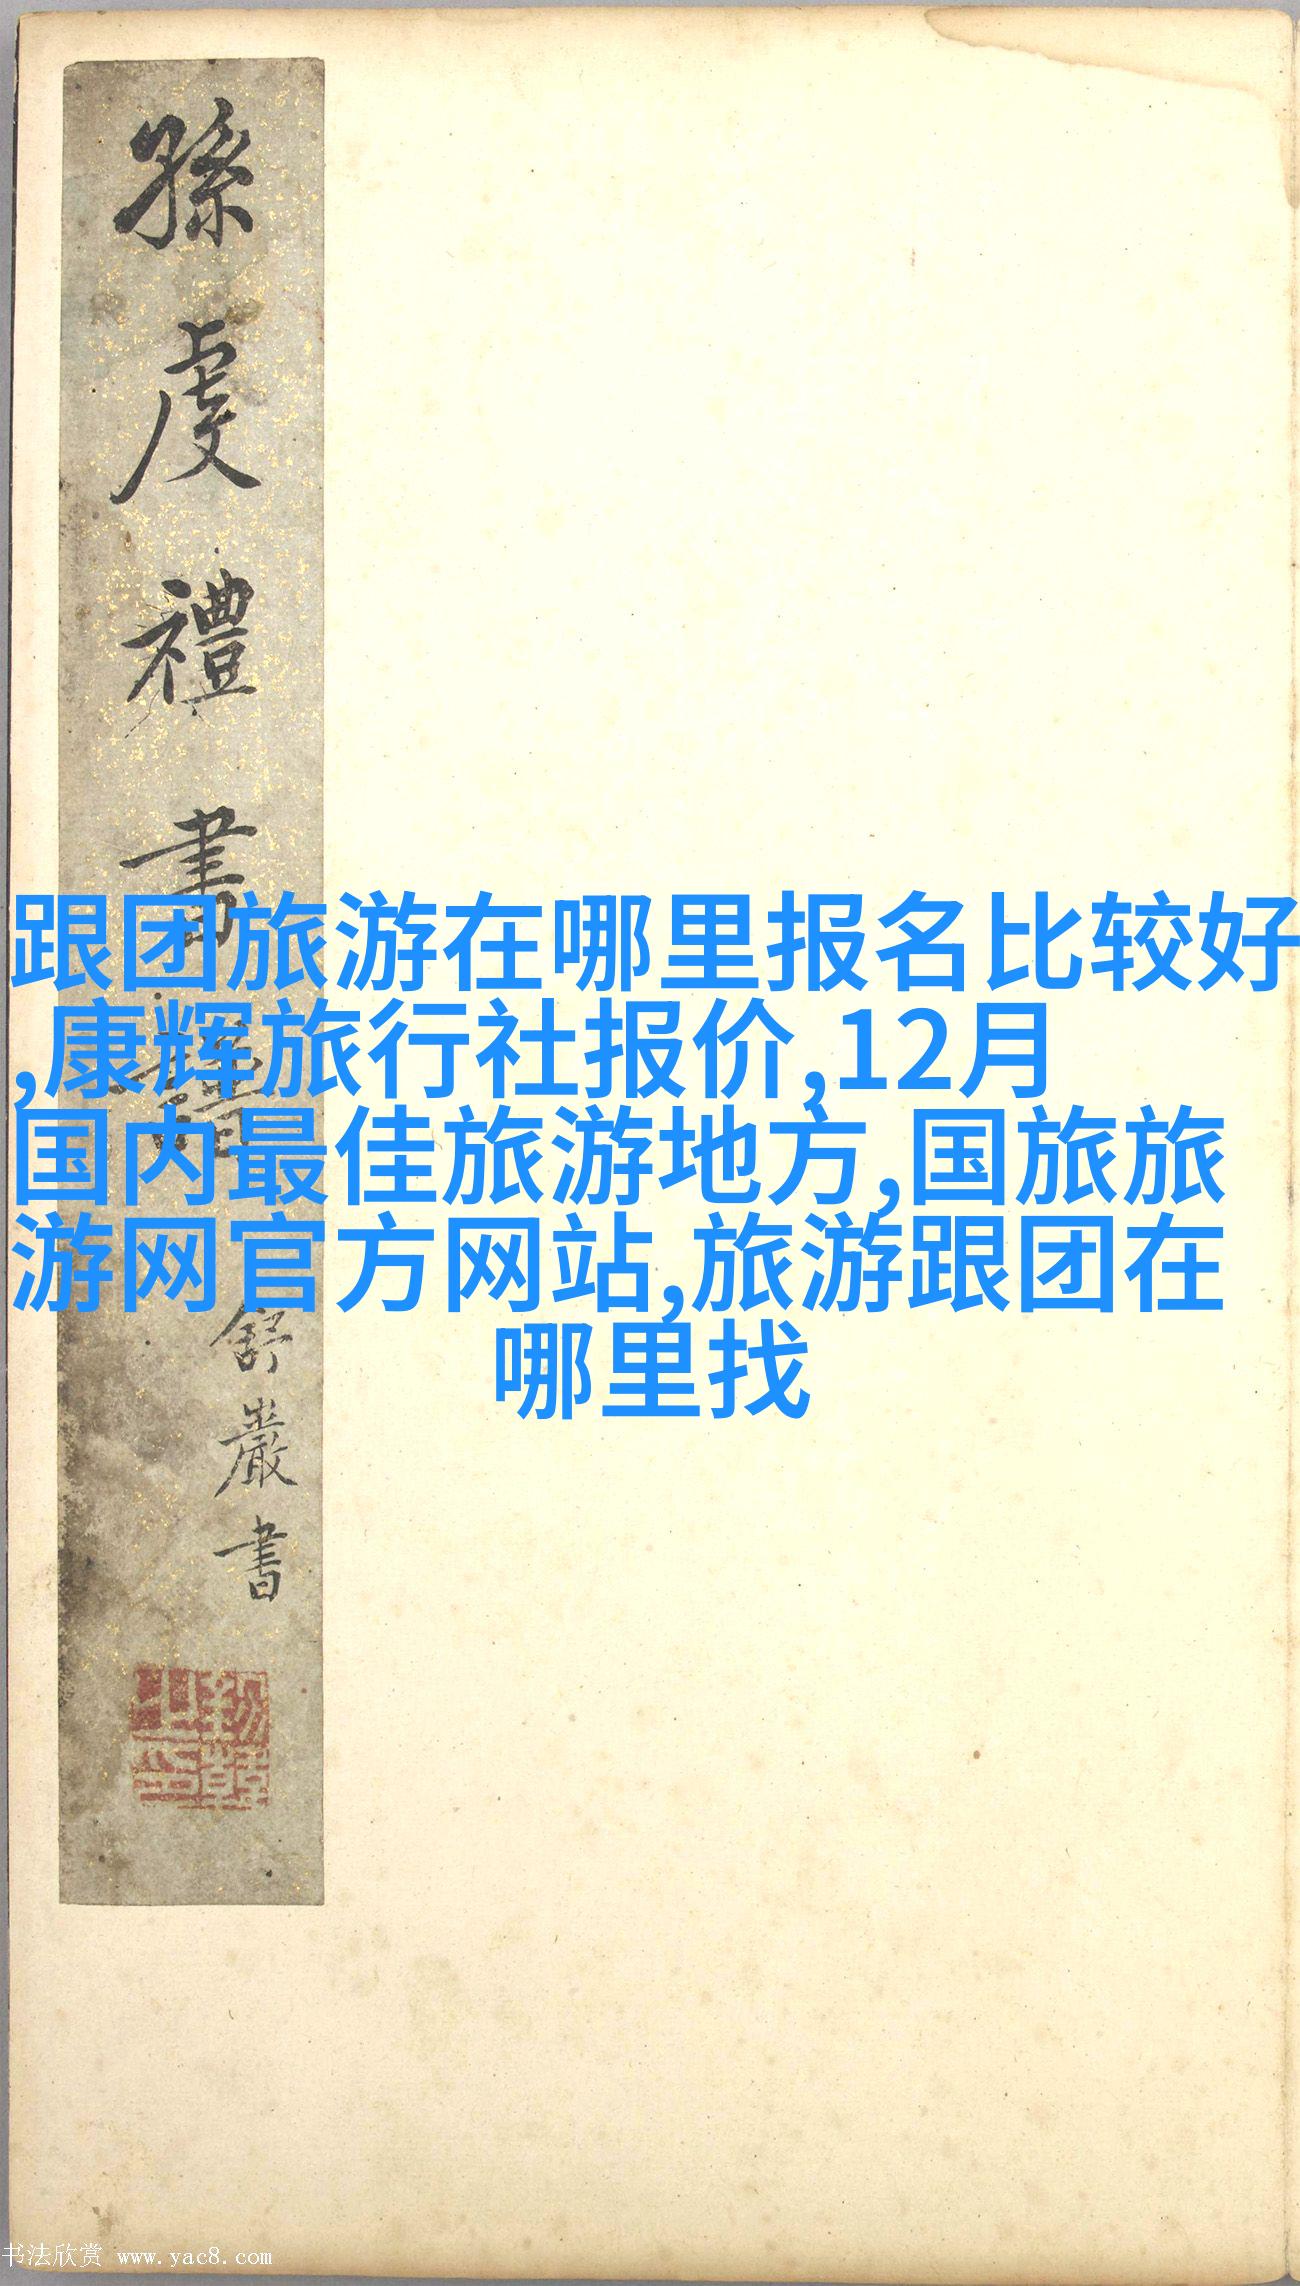 孫虔禮書譜
舒嚴書
跟团旅游在哪里报名比较好
,康辉旅行社报价,12月
国内最佳旅游地方,国旅旅
游网官方网站,旅游跟团在
哪里找
书法欣赏 www.yac8.com